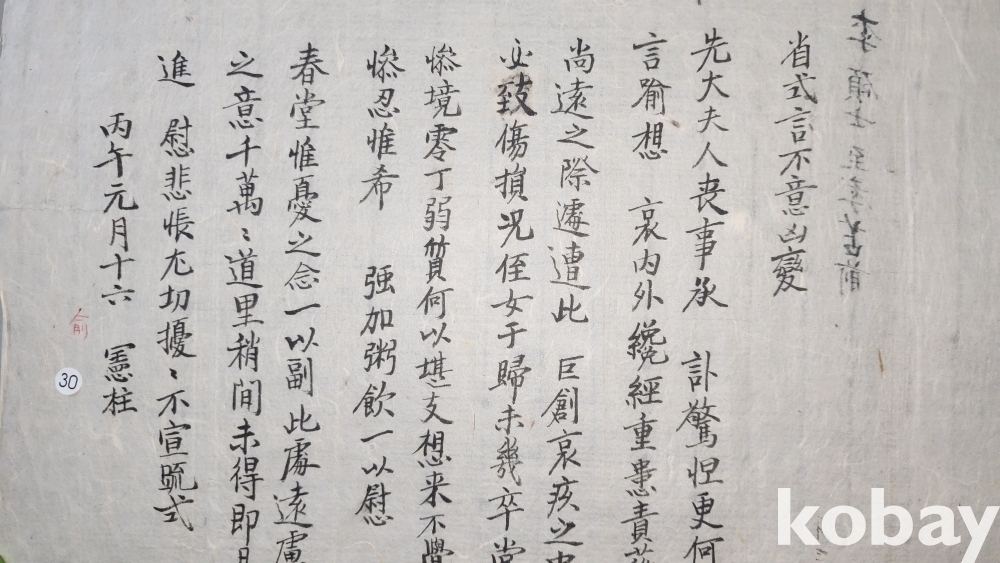 省式言不意凶變
先大夫人喪事承 訃驚怛更何
言喩想 哀內外纔經重患責
尚遠之際遽遭此 巨創哀疚之中
必致傷損況侄女于歸未幾卒當
慘境零丁弱質何以堪支想來不覺
慘忍惟希 强加粥飮一以慰
春堂惟憂之念一以副此處遠慮
之意千萬〻道里稍間未得卽
進 慰悲悵尤切擾〻不宣疏式
丙午元月十六 憲柱
兪
30
kobay